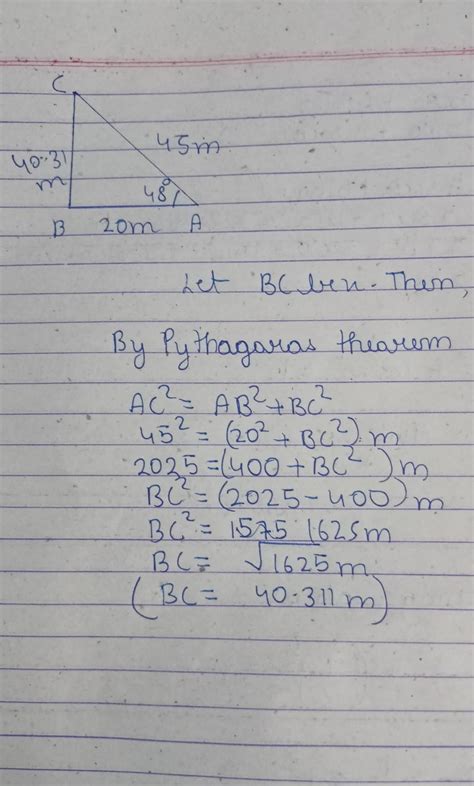 C
45m
40.31
m
48°
B 20m A
Let BC be x. Then,
By Pythagaras thearem
AC² = AB² + BC²
45² = (20² + BC²) m
2025 = (400 + BC²) m
BC² = (2025 - 400) m
BC² = 1575 1625m
BC = √1625 m
(BC = 40.311 m)